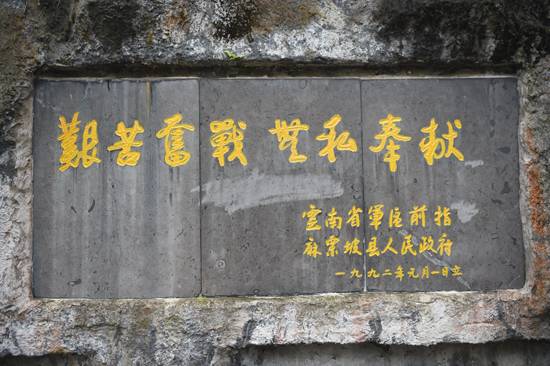 艱苦奮戰 無私奉献
雲南省軍區前指
麻栗坡县人民政府
一九九二年元月一日立